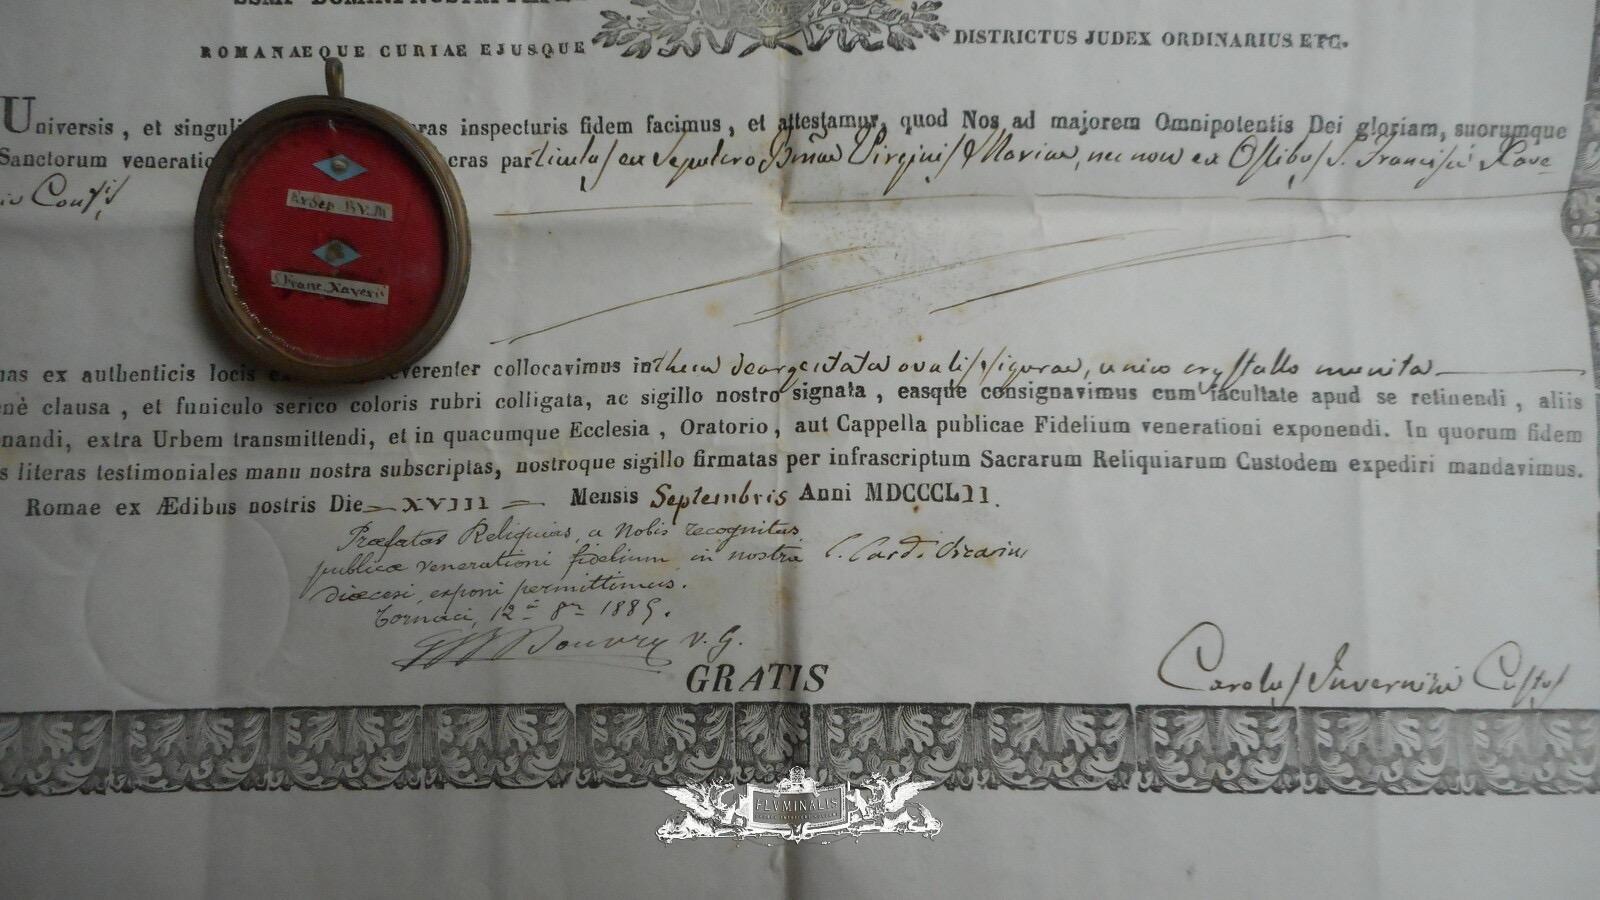 ROMANAEQUE CURIAE EJUSQUE
DISTRICTUS JUDEX ORDINARIUS ETC.
Universis, et singuli ras inspecturis fidem facimus, et attestamur, quod Nos ad majorem Omnipotentis Dei gloriam, suorumque
Sanctorum veneratio cras particulas ex Sepulcro Virginis Mariae, nec non ex Ossibus S. Francisci Xave
Ex Sep. B.V.M
S. Franc. Xaverii
nas ex authenticis locis reverenter collocavimus in theca deargentata ovalis figurae, unico crystallo munita
nè clausa, et funiculo serico coloris rubri colligata, ac sigillo nostro signata, easque consignavimus cum facultate apud se retinendi, aliis
nandi, extra Urbem transmittendi, et in quacumque Ecclesia, Oratorio, aut Cappella publicae Fidelium venerationi exponendi. In quorum fidem
s literas testimoniales manu nostra subscriptas, nostroque sigillo firmatas per infrascriptum Sacrarum Reliquiarum Custodem expediri mandavimus.
Romae ex Ædibus nostris Die XVIII Mensis Septembris Anni MDCCCLII.
Præfatas Reliquias, a Nobis recognitas
publicæ venerationi fidelium in nostra
diœcesi, exponi permittimus.
Tornaci, 12 1885.
V. G.
GRATIS
Carolus Invernizi Custos
FLVMINALIS